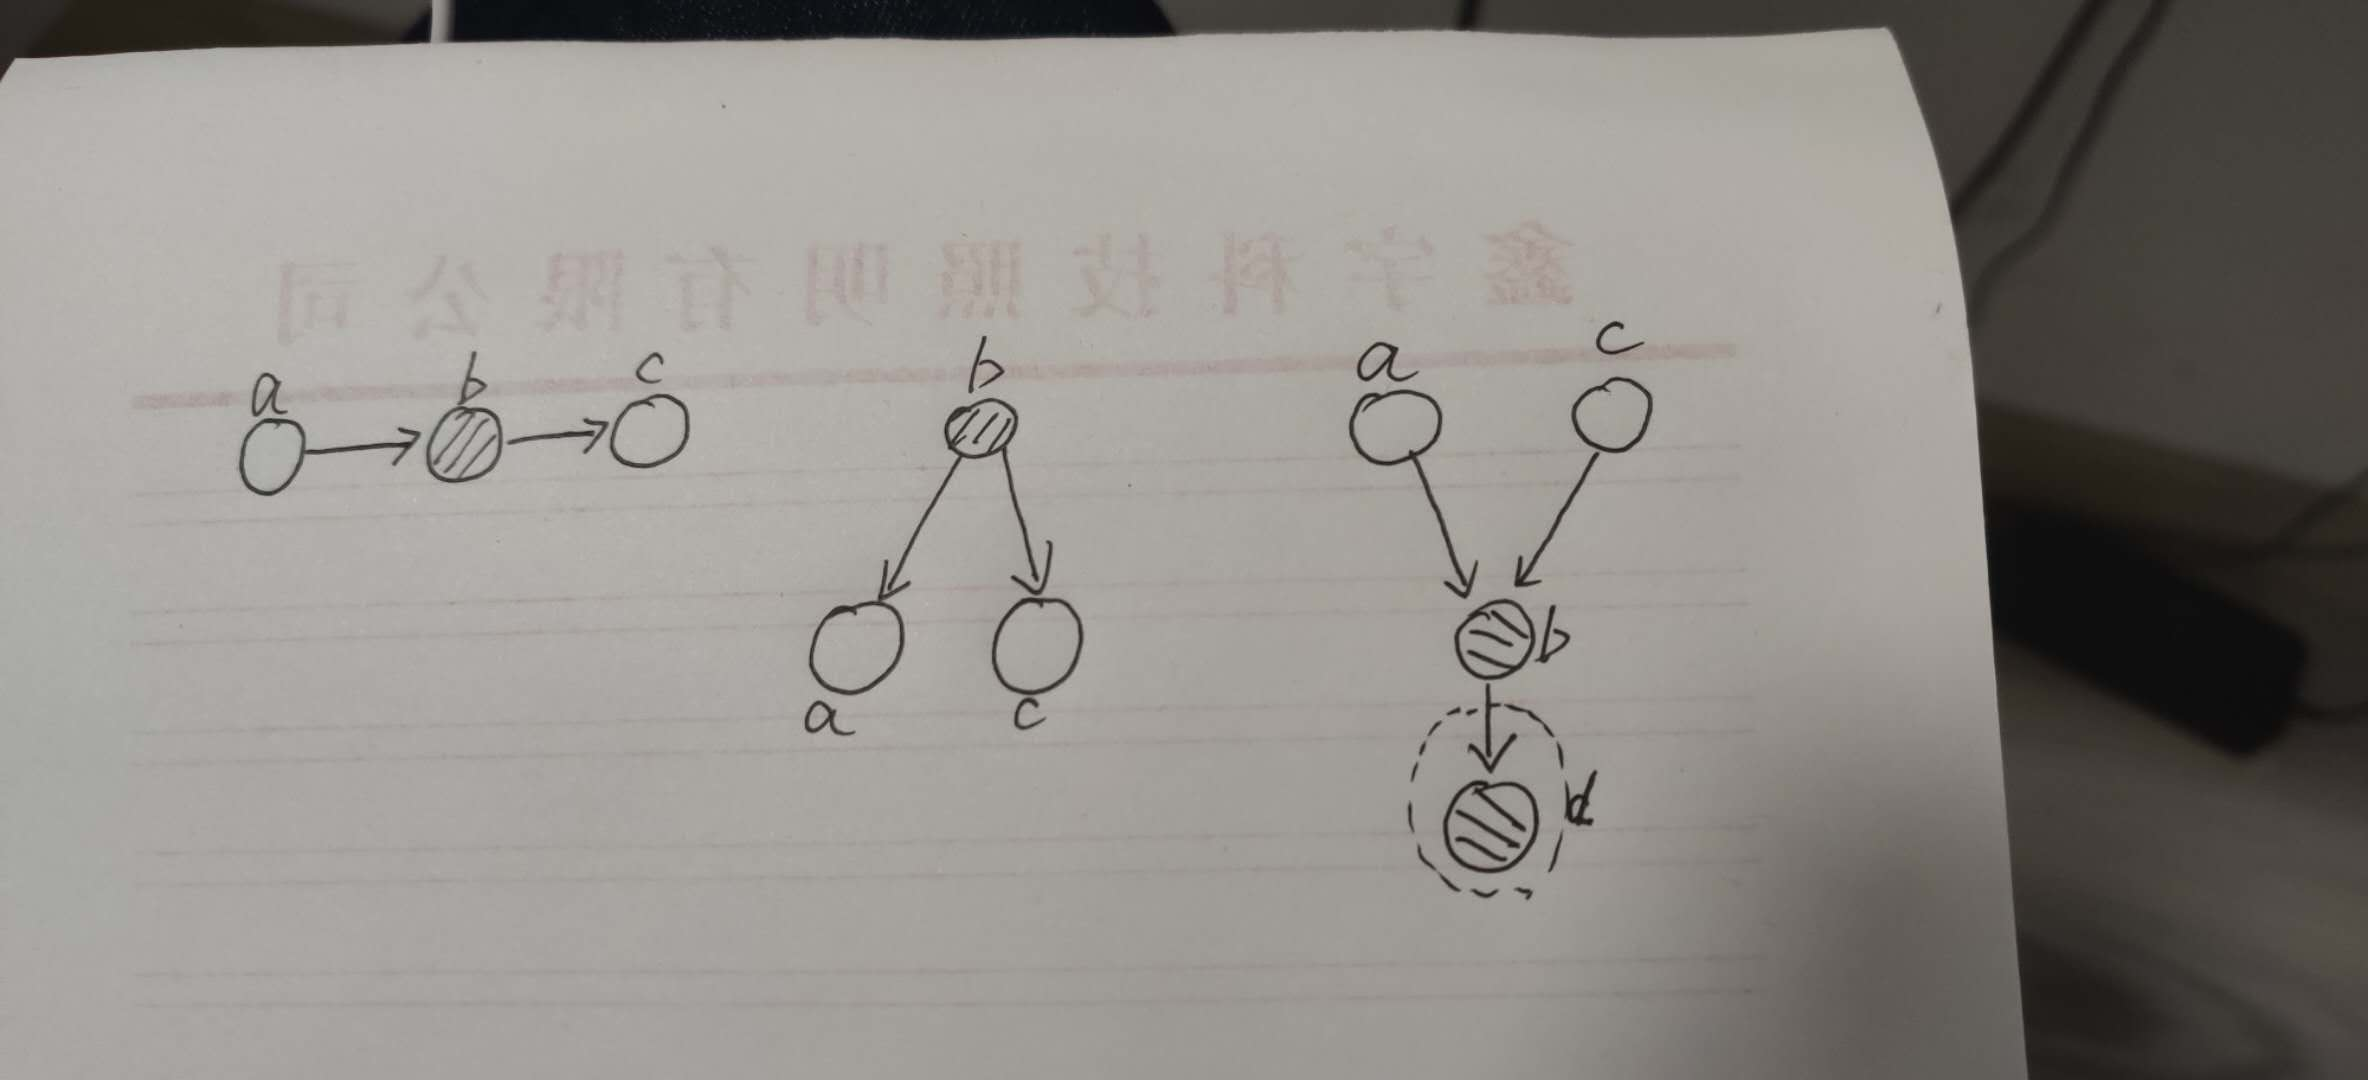 鑫宇科技照明有限公司
a b c
b
a c
a c
b
d